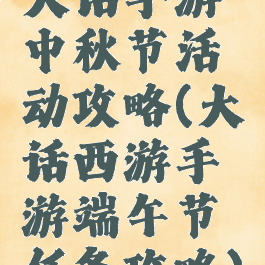 大话手游
中秋节活
动攻略(大
话西游手
游端午节
任务攻略)